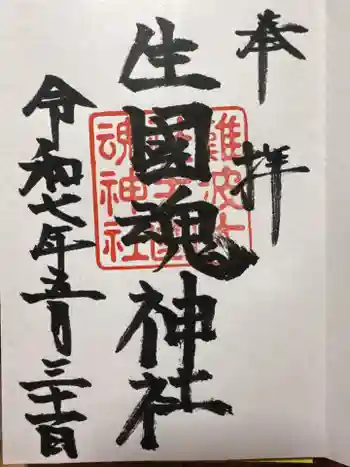 奉拝
生國魂神社
令和七年五月三十一日
難波大
社生國
魂神社